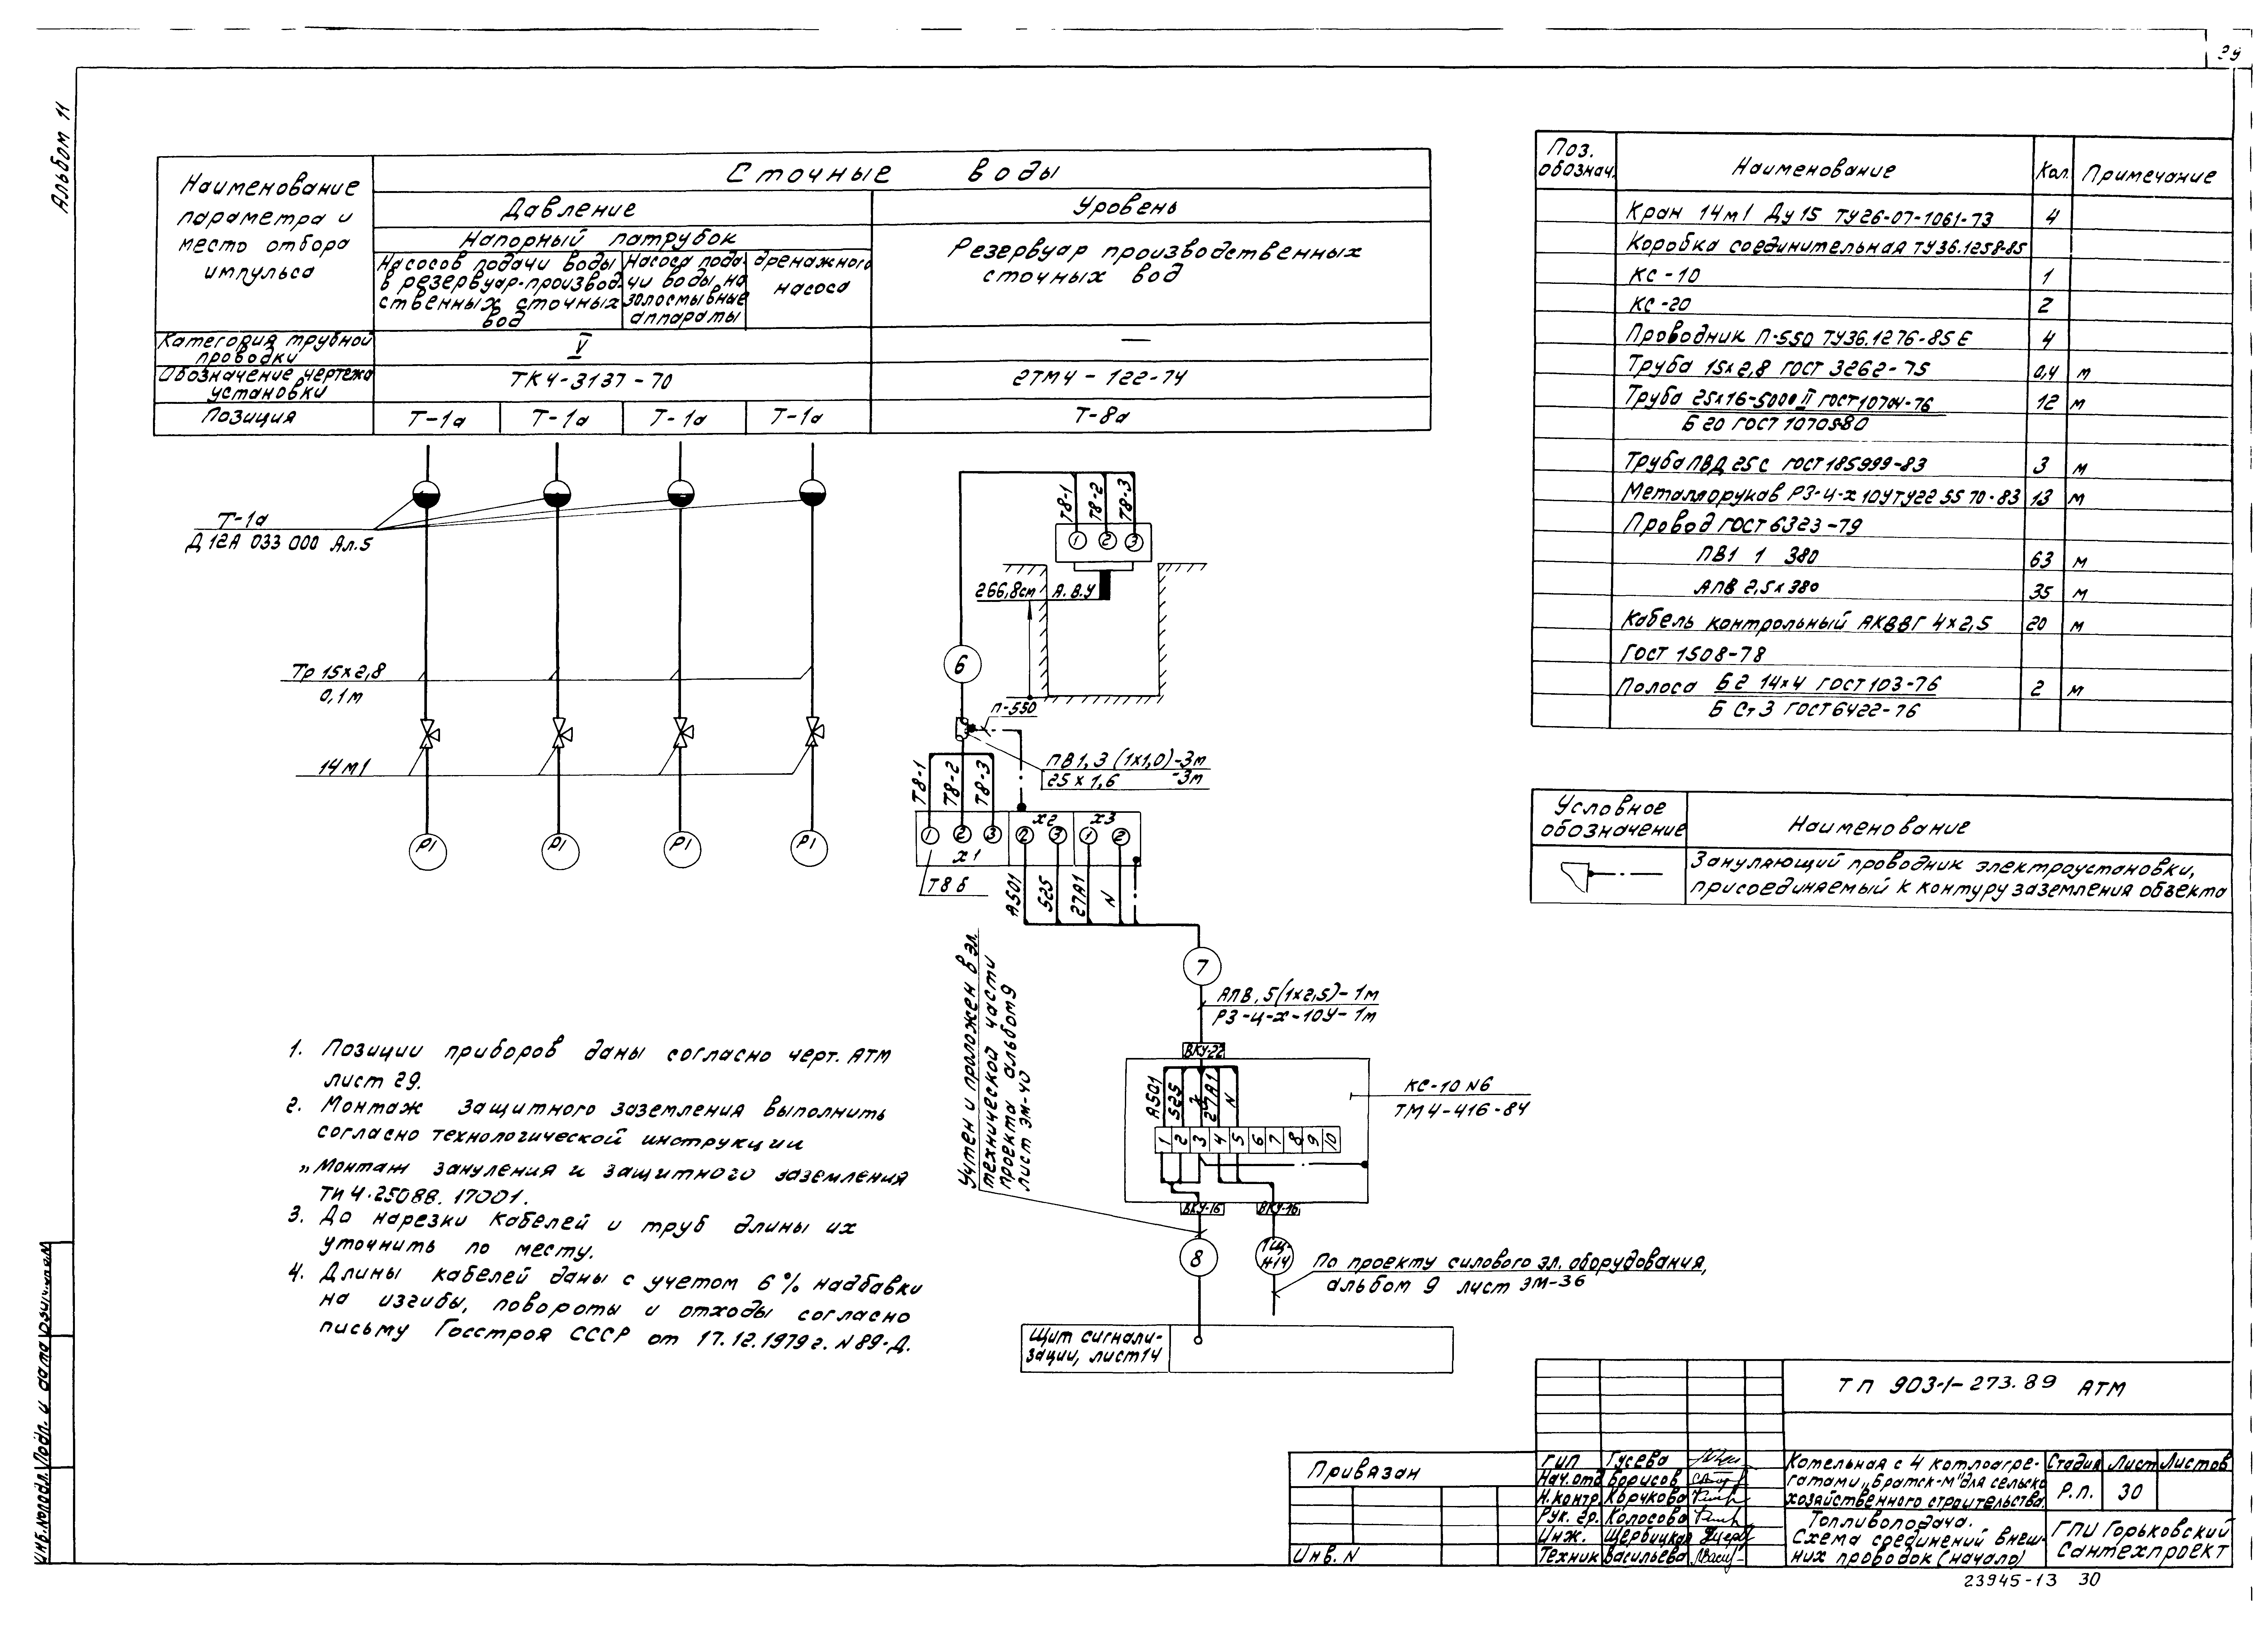 Альбом 11
Наименование
параметра и
место отбора
импульса
Сточные воды
Давление
Уровень
Напорный патрубок
Насосов подачи воды
в резервуар-производ-
ственных сточных
вод
Насоса пода-
чи воды на
золосмывные
аппараты
дренажного
насоса
Резервуар производственных
сточных вод
Категория трубной
проводки
V
—
Обозначение чертежа
установки
ТК4-3137-70
2ТМ4-122-74
Позиция
Т-1а
Т-1а
Т-1а
Т-1а
Т-8а
Т-1а
Д 12А 033 000 Ал.5
Тр 15x2,8
0,1м
14м1
PI
PI
PI
PI
Т8-1
Т8-2
Т8-3
1
2
3
266,8см
А.В.У
6
П-550
ПВ1,3 (1x1,0)-3м
25x1,6 -3м
Т8-1
Т8-2
Т8-3
1
2
3
х1
х2
2
3
х3
1
2
Т8б
А501
525
27А1
N
7
АПВ,5(1x2,5)-1м
РЗ-Ц-Х-10У-1м
Учтен и проложен в эл.
технической части
проекта альбом9
лист ЭМ-40
ВКУ-22
А501
525
27А1
N
1 2 3 4 5 6 7 8 9 10
КС-10 N6
ТМ4-416-84
ВКУ-16
ВКУ-16
8
1Щ-
Н14
По проекту силового эл. оборудования,
альбом 9 лист ЭМ-36
Щит сигнали-
зации, лист14
1. Позиции приборов даны согласно черт. АТМ
лист 29.
2. Монтаж защитного заземления выполнить
согласно технологической инструкции
„Монтаж зануления и защитного заземления
ТИ4.25088.17001.
3. До нарезки кабелей и труб длины их
уточнить по месту.
4. Длины кабелей даны с учетом 6% надбавки
на изгибы, повороты и отходы согласно
письму Госстроя СССР от 17.12.1979г. N89-Д.
Поз.
обознач.
Наименование
Кол.
Примечание
Кран 14м1 Ду15 ТУ26-07-1061-73 4
Коробка соединительная ТУ36.1258-85
КС-10 1
КС-20 2
Проводник П-550 ТУ36.1276-85Е 4
Труба 15x2,8 ГОСТ 3262-75 0,4 м
Труба 25x16-5000 II ГОСТ10704-76 12 м
Б 20 ГОСТ 10705-80
Труба ПВД 25С ГОСТ 185999-83 3 м
Металлорукав РЗ-Ц-Х 10У ТУ22 5570-83 13 м
Провод ГОСТ 6323-79
ПВ1 1 380 63 м
АПВ 2,5x380 35 м
Кабель контрольный АКВВГ 4x2,5 20 м
ГОСТ 1508-78
Полоса Б2 14x4 ГОСТ103-76 2 м
Б Ст3 ГОСТ6422-76
Условное
обозначение
Наименование
Зануляющий проводник электроустановки,
присоединяемый к контуру заземления объекта
ТП 903-1-273.89 АТМ
Привязан
Инв. N
ГИП Гусева
Нач.отд Борисов
Н.контр. Кврчкова
Рук. гр. Колосова
Инж. Щербицкая
Техник Васильева
Котельная с 4 котлоагре-
гатами„Братск-М"для сельско
хозяйственного строительства.
Топливоподача.
Схема соединений внеш-
них проводок (начало)
Стадия Лист Листов
Р.П. 30
ГПИ Горьковский
Сантехпроект
23945-13 30
Инв.Nподл.
Подп. и дата